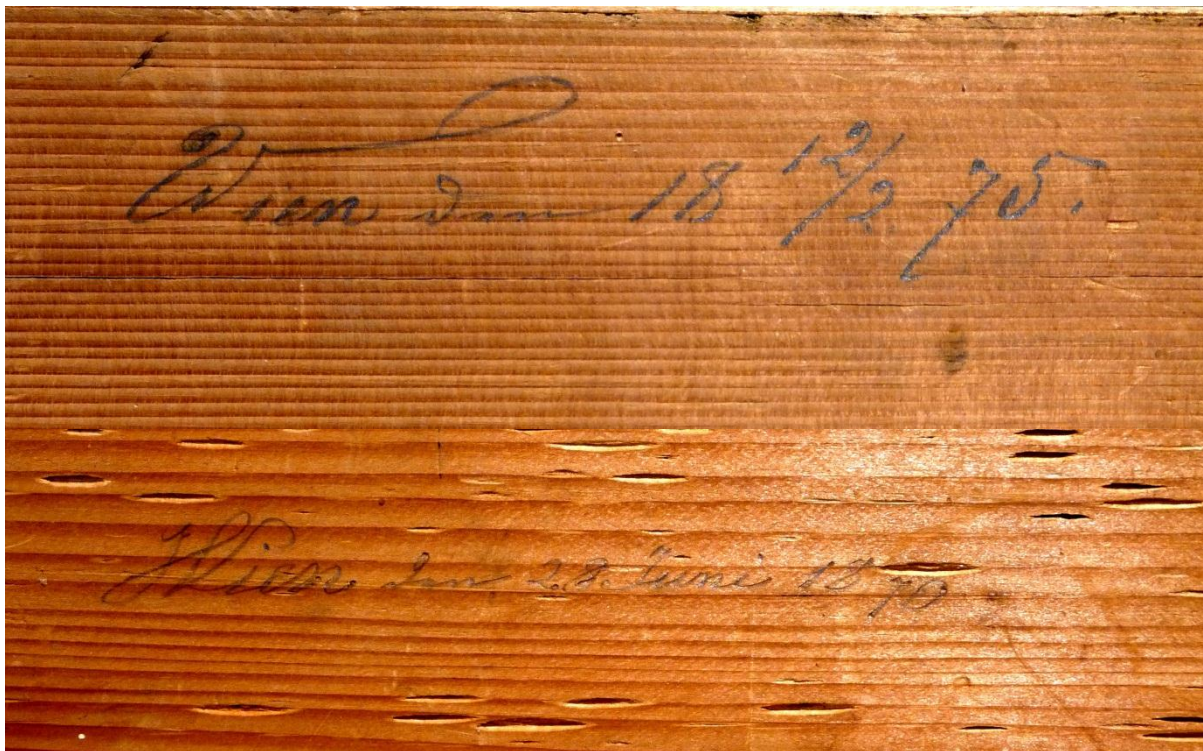 Wien den 18 12/2 75.
Wien den 28. Juni 1876